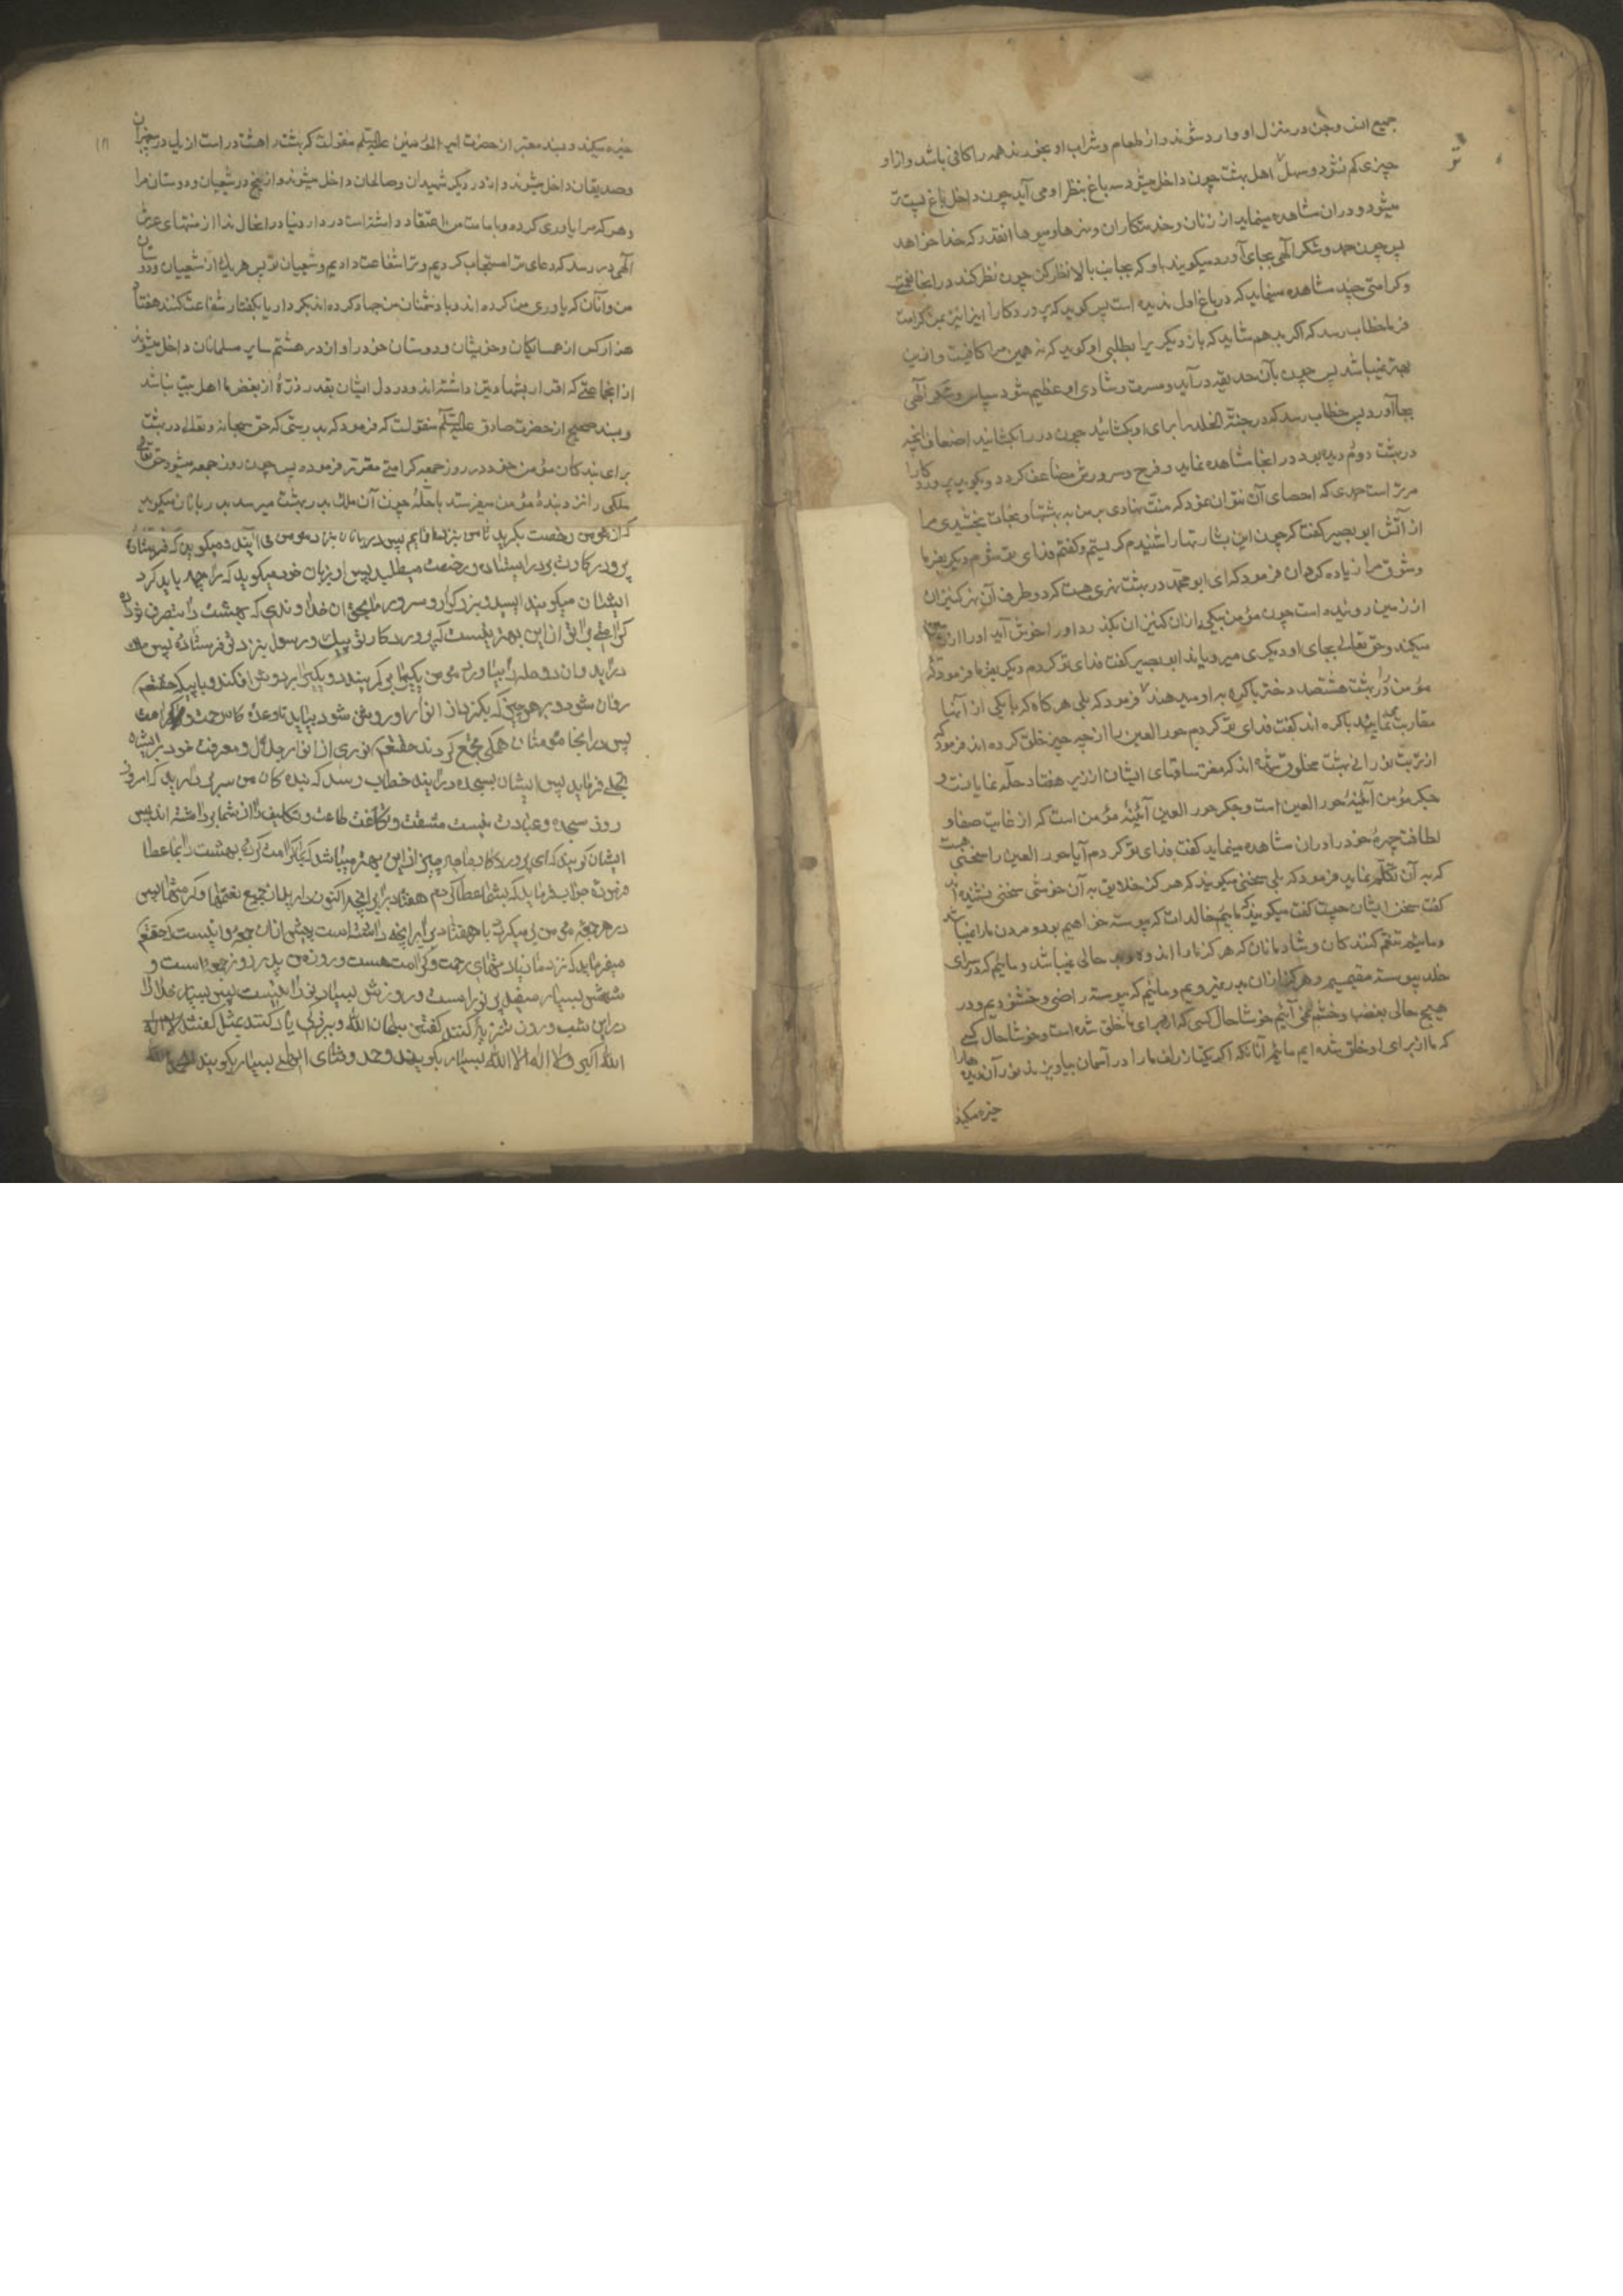 جمیع انس و جن در منزل او وارد شوند و از طعام و شراب او بخورند همه را کافی باشد و از او
چیزی کم نشود و سهل اهل بهشت چون داخل میشود سه باغ بنظر او می آید چون داخل باغ پست تر
میشود و در آن مشاهده مینماید از زنان و خدمتکاران و نهرها و میوها آنقدر که خدا خواهد
پس چون حمد و شکر الهی بجای آورد میگویند باو که بجانب بالا نظر کن چون نظر کند در آنجا نعمت
و کرامتی چند مشاهده مینماید که در باغ اول ندیده است پس گوید که پروردگارا این را نیز بمن کرامت
فرما خطاب رسد که اگر بدهم شاید که باز دیگر برا بطلبی او گوید که نه همین مرا کافیست و از این
بهتر نمیباشد پس چون بآن حدیقه درآید و مسرت و شادی او عظیم شود سپاس و شکر الهی
بجا آورد پس خطاب رسد که در جنة الخلد را برای او بکشائید چون در را بکشایند اضعاف آنچه
در بهشت دوم دیده بود در آنجا مشاهده نماید و فرح و سرورش مضاعف گردد و بگوید پروردگارا
مر تراست حمدی که احصای آن نتوان نمود که منت نهادی بر من به بهشتها و نجات بخشیدی مرا
از آتش ابو بصیر گفت که چون این بشارتها را شنیدم گریستم و گفتم فدای تو شوم دیگر بفرما
و شوق مرا زیاده گردان فرمود که ای ابو محمد در بهشت نهری هست که در دو طرف آن نهر کنیزان
از زمین روئیده است چون مؤمن بیکی از آن کنیزان بگذرد و او را خوش آید او را از
میکند و حق تعالی بجای او دیگری میرویاند ابو بصیر گفت فدای تو گردم دیگر بفرما فرمود که
مؤمن را در بهشت هشتصد دختر باکره به او میدهند فرمود که بلی هر گاه که با یکی از آنها
مقاربت نمایند باکره اند گفت فدای تو گردم حور العین را از چه چیز خلق کرده اند فرمود که
از تربت نورانی بهشت مخلوق شده اند که مغز ساقهای ایشان از زیر هفتاد حله نمایانست و
جگر مؤمن آئینهٔ حور العین است و جگر حور العین آئینهٔ مؤمن است که از غایت صفا و
لطافت چهرهٔ خود را در آن مشاهده مینماید گفت فدای تو گردم آیا حور العین را سخنی هست
که به آن تکلم نماید فرمود که بلی سخنی میگویند که هرگز خلایق به آن خوشی سخنی نشنیده اند
گفت سخن ایشان چیست گفت میگویند که مائیم خالدات که پیوسته خواهیم بود و مردن ما را نمیباشد
و مائیم تنعم کنندگان و شادمانان که هرگز ما را اندوه و بد حالی نمیباشد و مائیم که در سرای
خلد پیوسته مقیمیم و هرگز از آن بدر نمیرویم و مائیم که پیوسته راضی و خشنودیم و در
هیچ حالی بغضب و خشم نمی آئیم خوشا حال کسی که از برای ما خلق شده است و خوشا حال کسی
که ما از برای او خلق شده ایم مائیم آنانکه اگر یکتا زلف ما را در آسمان بیاویزند نور آن دیدها را
خیره میکند
خیره میکند و بسند معتبر از حضرت امیر المؤمنین علیه السلم منقولست که بهشت را هشت در است از یک در پیغمبران
و صدیقان داخل میشوند و از در دیگر شهیدان و صالحان داخل میشوند و از پنج در شیعیان و دوستان مرا
و هر که مرا یاوری کرده و بامامت من اعتقاد داشته است در دار دنیا در آنحال ندا از منتهای عرش
الهی در رسد که دعای ترا مستجاب کردیم و ترا شفاعت دادیم و شیعیان تو پس هر یک از شیعیان و دوستان
من و آنان که یاوری من کرده اند و با دشمنان من جهاد کرده اند بکردار یا بگفتار شفاعت کنند هفتاد
هزار کس از همسایگان و خویشان و دوستان خود را و از در هشتم سایر مسلمانان داخل میشوند
از آنجماعتی که اقرار بشهادتین داشته اند و در دل ایشان بقدر ذرهٔ از بغض ما اهل بیت نباشد
و بسند صحیح از حضرت صادق علیه السلم منقولست که فرمود که بدرستی که حق سبحانه و تعالی در بهشت
برای بندگان مؤمن خود در روز جمعه کرامتی مقرر فرموده پس چون روز جمعه میشود حق تعالی
ملکی را نزد بندهٔ مؤمن میفرستد با حله چون آن ملک بدر بهشت میرسد بدربانان میگوید
که از مؤمن رخصت بگیرید تا من بنزد او آیم پس دربانان بنزد مؤمن می آیند و میگویند که فرستادهٔ
پروردگارت بر در ایستاده و رخصت میطلبد پس او بزنان خود میگوید که مرا چه باید کرد
ایشان میگویند ای سید و بزرگوار و سرور ما بحق آن خداوندی که بهشت را متصرف تو داده
کرامتی برای تو از این بهتر نیست که پروردگار تو پیک و رسول بنزد تو فرستاده پس ملک
درآید و آن دو حله را بیاورد مؤمن یکی را بر کمر بندد و یکی را بر دوش افکند و با پیک حقتعالی
روان شود و بر هر چیز که بگذرد از انوار او روشن شود بیاید تا وعده گاه رحمت و کرامت
پس در آنجا مؤمنان همگی مجتمع گردند حقتعالی نوری از انوار جلال و معرفت خود بر ایشان
تجلی فرماید پس ایشان بسجده درآیند خطاب رسد که بندگان من سر بردارید که امروز
روز سجده و عبادت نیست مشقت و کلفت طاعت و تکالیف را از شما برداشته اند پس
ایشان گویند که ای پروردگار ما چه چیز از این بهتر میباشد که بما کرامت کردی بهشت را بما عطا
فرمودی جواب فرماید که بشما عطا کردم هفتاد برابر آنچه اکنون دارید از جمیع نعمتها و کرامتها پس
در هر جمعه مؤمن برمیگردد با هفتاد برابر آنچه داشته است پیش از آن جمعه و اینست که حقتعالی
میفرماید که نزد ما زیادتیهای رحمت و کرامت هست و روز مزید روز جمعه است و
شبش بسیار سفید و نورانیست و روزش بسیار نورانیست پس بسیار خدا را
در این شب و روز تنزیه کنند بگفتن سبحان الله و ببزرگی یاد کنند بمثل گفتن
الله اکبر و لا اله الا الله بسیار بگویند و حمد و ثنای الهی بسیار بگویند